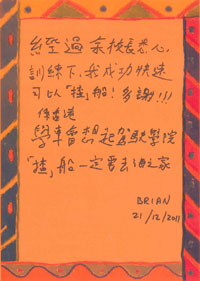 經過余校長悉心
訓練下,我成功快速
可以「揸」船!多謝!!!
係香港
學車會想起駕駛學院
「揸」船一定要去海之家
BRIAN
21/12/2011